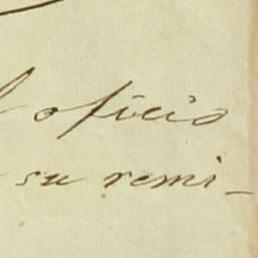 oficio
su remi-